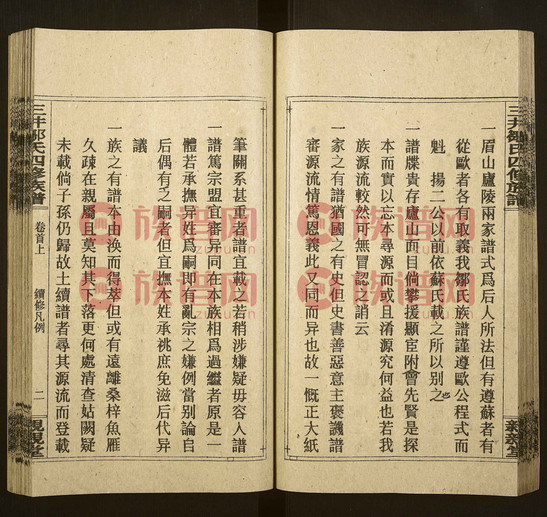 三井鄒氏四修族譜
一眉山廬陵兩家譜式爲后人所法但有遵蘇者有
從歐者各有取義我鄒氏族譜謹遵歐公程式而
魁 揚二公以前依蘇氏載之所以別之也
一譜牒貴存廬山面目倘攀援顯宦附會先賢是探
本而實以忘本尋源而或且淆源究何益也若我
族源流較然可無冒認之誚云
一家之有譜猶國之有史但史書善惡意主褒譏譜
審源流情篤恩義此又同而异也故一慨正大紙
親親堂
筆關系甚重者譜宜載之若稍涉嫌疑毋容入譜
一譜篤宗盟宜審异同在本族相爲過繼者原是一
體若承撫异姓爲嗣即有亂宗之嫌例當別論自
后偶有乏嗣者但宜撫本姓承祧庶免滋后代异
議
一族之有譜本由渙而得萃但或有遠離桑梓魚雁
久疎在親屬且莫知其下落更何處清查姑闕疑
未載倘子孫仍歸故土續譜者尋其源流而登載
三井鄒氏四修族譜
卷首上
續修凡例
二
親親堂
族谱网
族谱网
族谱网
族谱网